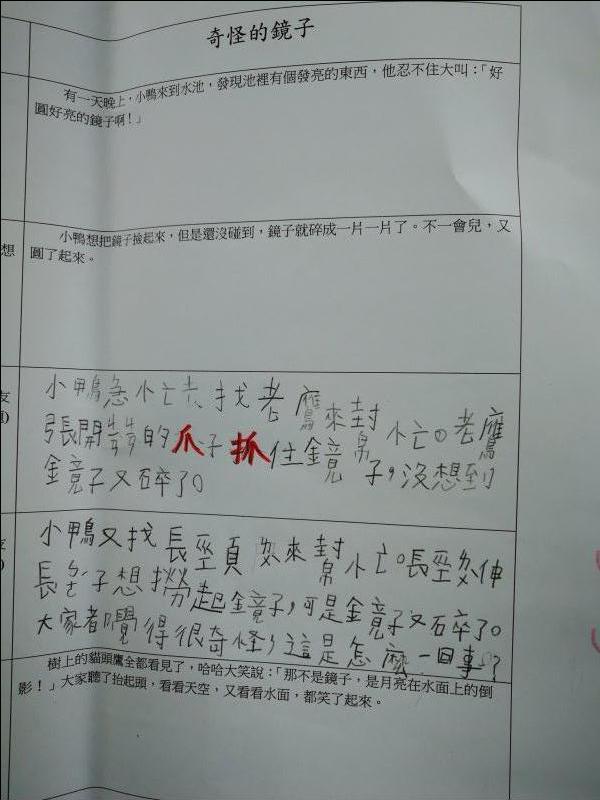 奇怪的鏡子
有一天晚上，小鴨來到水池，發現池裡有個發亮的東西，他忍不住大叫：「好
圓好亮的鏡子啊！」
想
小鴨想把鏡子撿起來，但是還沒碰到，鏡子就碎成一片一片了。不一會兒，又
圓了起來。
友
小鴨急忙去找老鷹來幫忙。老鷹
張開彎彎的爪子抓住鏡子，沒想到
鏡子又碎了。
小鴨又找長頸來幫忙。長頸伸
長子想撈起鏡子，可是鏡子又碎了。
大家都覺得很奇怪，這是怎麼一回事？
樹上的貓頭鷹全都看見了，哈哈大笑說：「那不是鏡子，是月亮在水面上的倒
影！」大家聽了抬起頭，看看天空，又看看水面，都笑了起來。